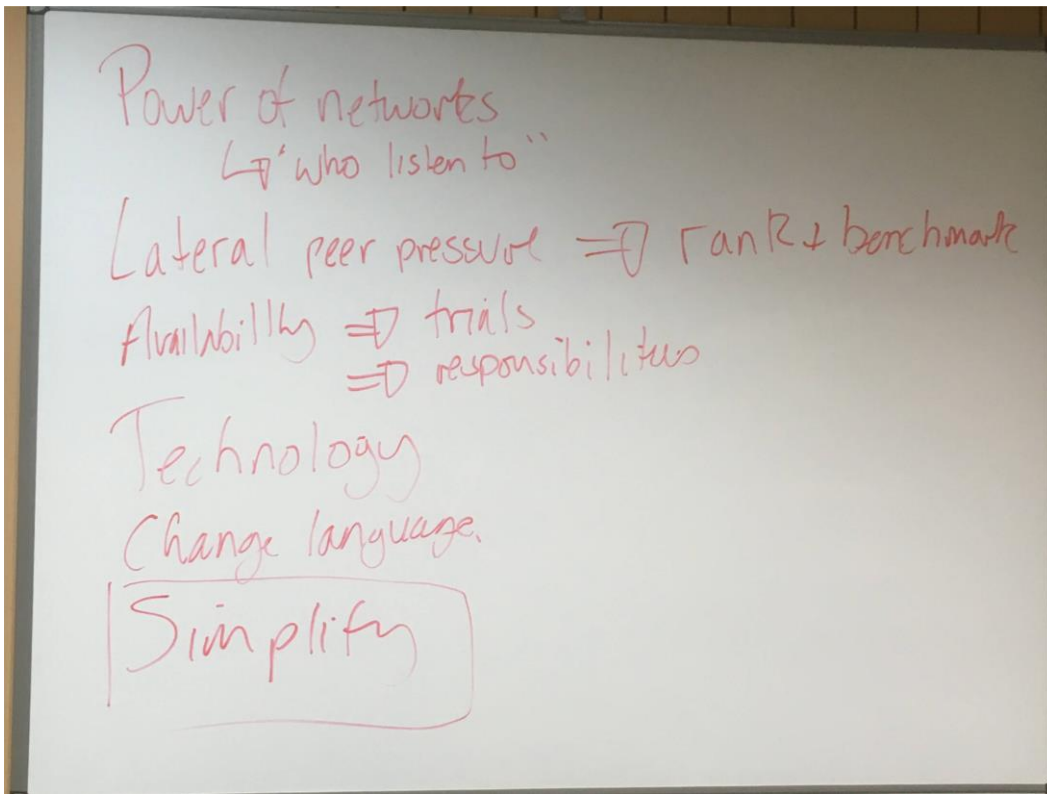 Power of networks
↳ "who listen to"
Lateral peer pressure ⇒ rank + benchmark
Availability ⇒ trials
⇒ responsibilities
Technology
Change language.
Simplify